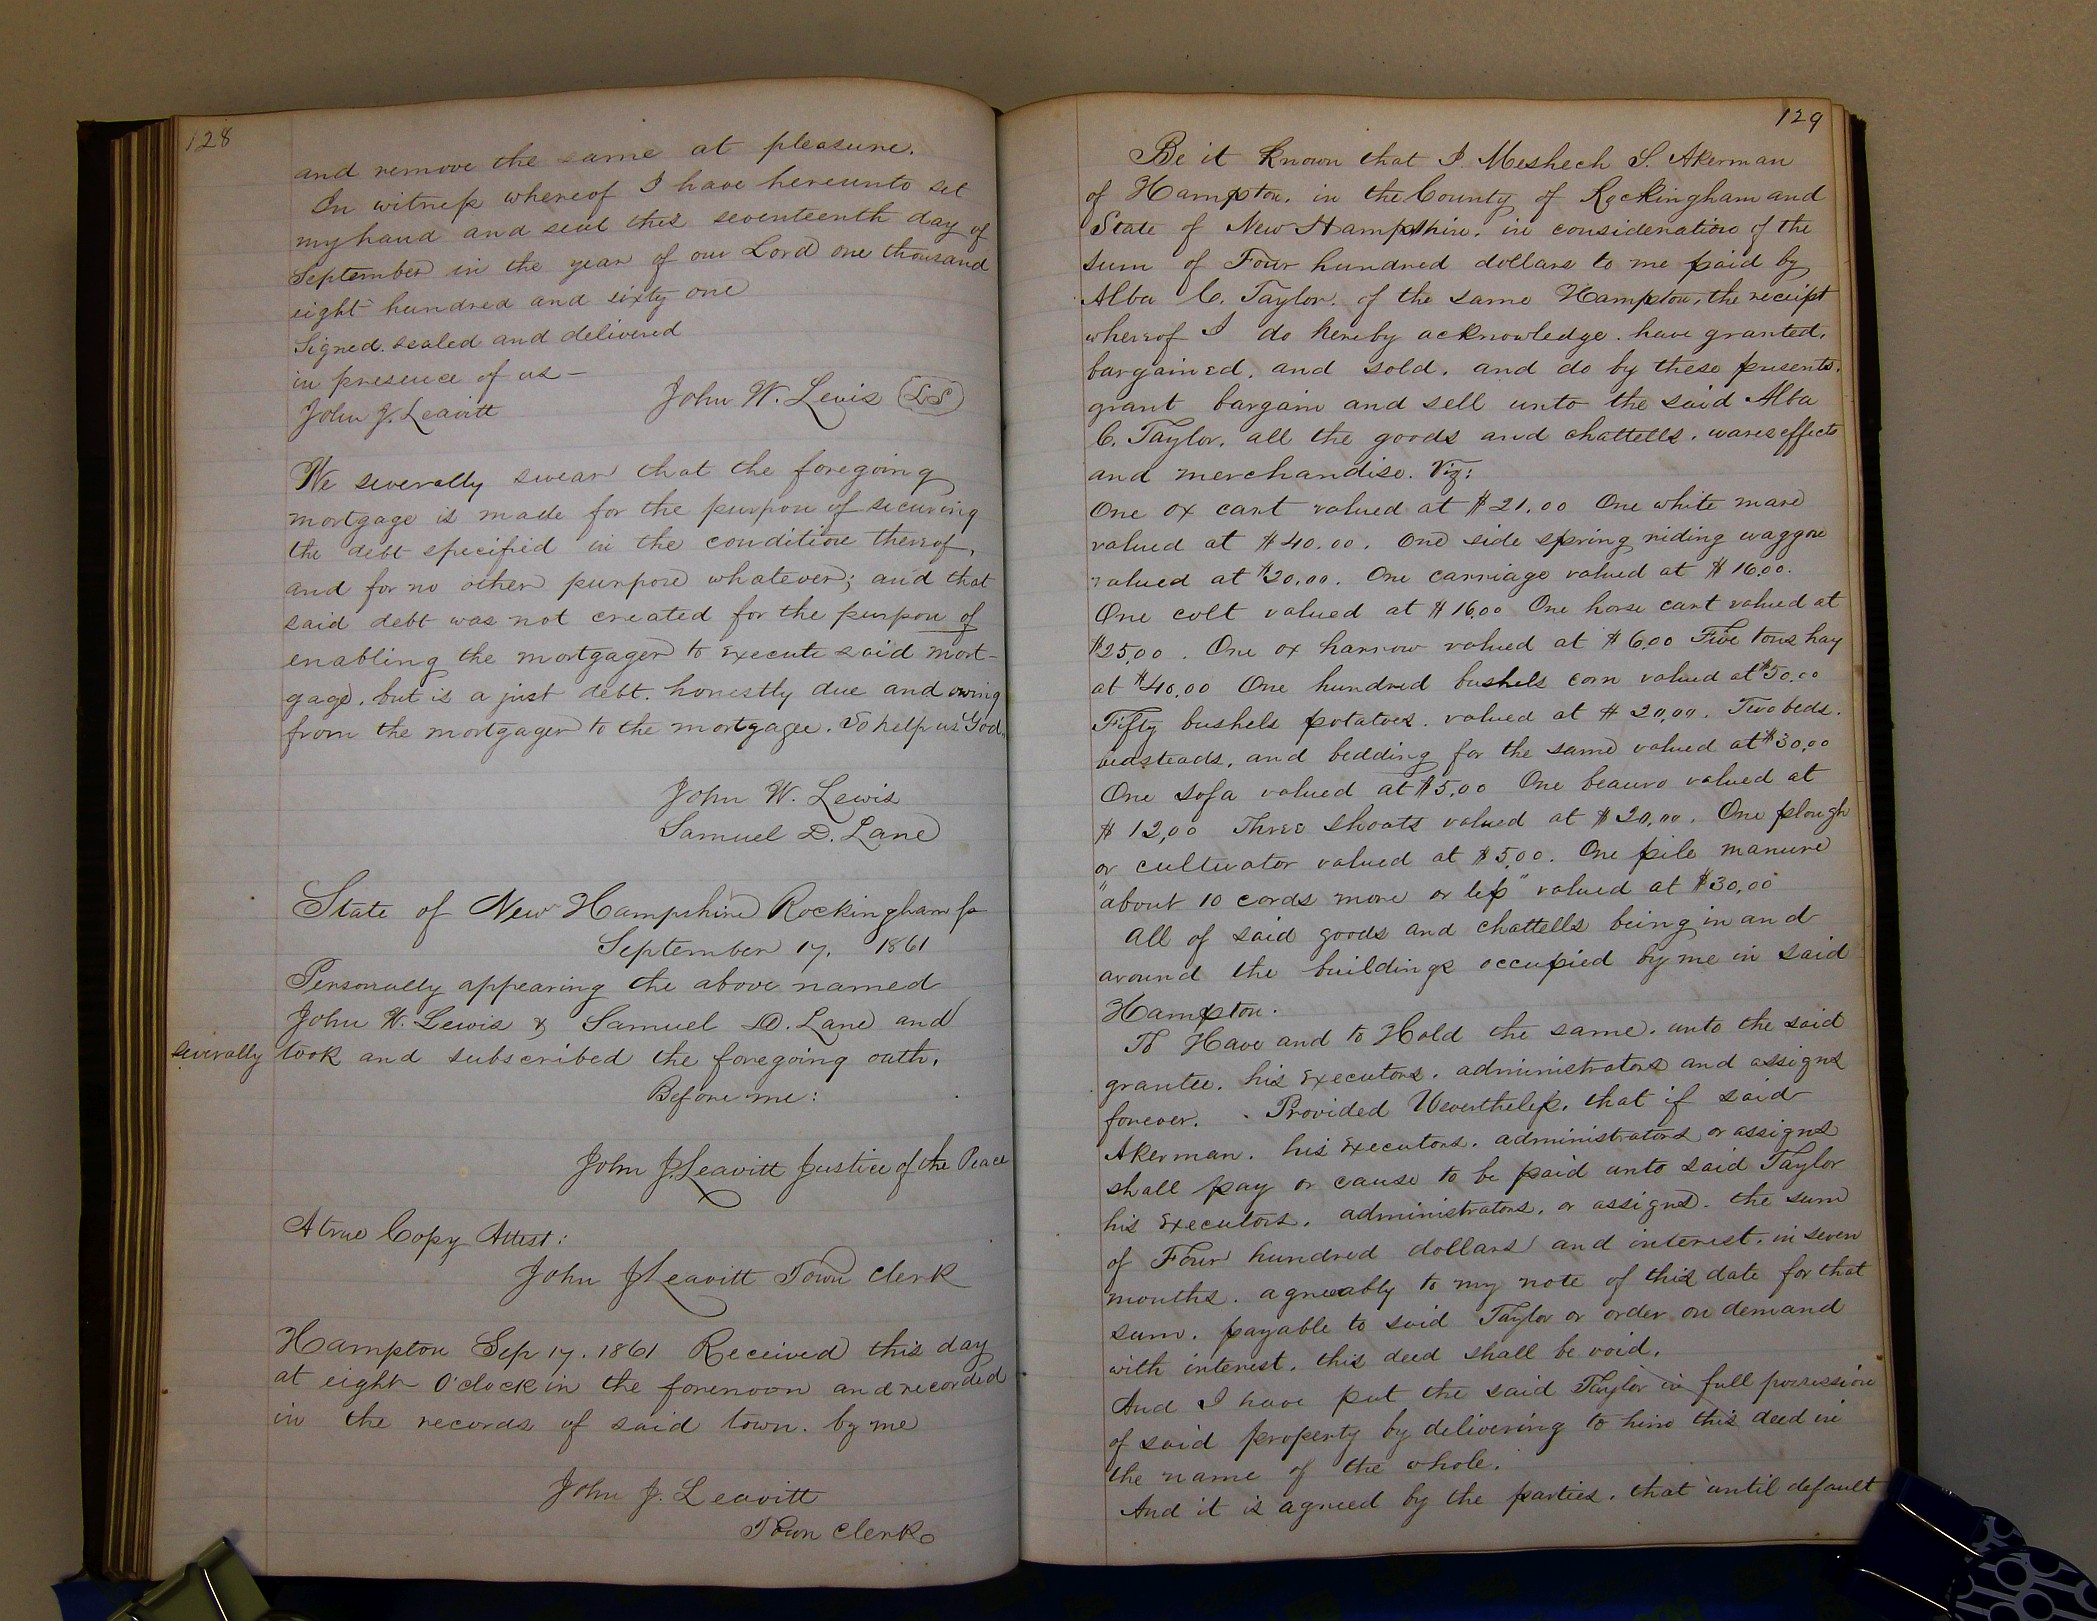 128
and remove the same at pleasure.
In witness whereof I have hereunto set
my hand and seal this seventeenth day of
September in the year of our Lord one thousand
eight hundred and sixty one
Signed. sealed and delivered
in presence of us –
John J. Leavitt John W. Lewis (LS)
We severally swear that the foregoing
mortgage is made for the purpose of securing
the debt specified in the condition thereof,
and for no other purpose whatever; and that
said debt was not created for the purpose of
enabling the mortgager to execute said mort-
gage, but is a just debt. honestly due and owing
from the mortgager to the mortgagee. So help us God.
John W. Lewis
Samuel D. Lane
State of New Hampshire Rockingham ss
September 17, 1861
Personally appearing the above named
John W. Lewis & Samuel D. Lane and
severally took and subscribed the foregoing oath,
Before me:
John J. Leavitt Justice of the Peace
A true Copy Attest:
John J Leavitt Town Clerk
Hampton Sep 17. 1861 Received this day
at eight O'clock in the forenoon and recorded
in the records of said town. by me
John J. Leavitt
Town Clerk
129
Be it Known that I. Meshech S. Akerman
of Hampton. in the County of Rockingham and
State of New Hampshire. in consideration of the
sum of Four hundred dollars to me paid by
Alba C. Taylor. of the same Hampton, the receipt
whereof I do hereby acknowledge. have granted,
bargained. and sold. and do by these presents.
grant bargain and sell unto the said Alba
C. Taylor. all the goods and chattells. wares effects
and merchandise. Viz:
One ox cart valued at $21.00 One white mare
valued at $40.00. One side spring riding waggon
valued at $20.00. One carriage valued at $16.00.
One colt valued at $16.00 One horse cart valued at
$25.00. One ox harrow valued at $6.00 Five tons hay
at $40.00 One hundred bushels corn valued at $50.00
Fifty bushels potatoes. valued at $20.00. Two beds.
bedsteads, and bedding for the same valued at $30.00
One sofa valued at $5.00 One beauro valued at
$12.00 Three shoats valued at $20.00. One plough
or cultivator valued at $5.00. One pile manure
"about 10 cords more or less" valued at $30.00
All of said goods and chattells being in and
around the buildings occupied by me in said
Hampton.
To Have and to Hold the same. unto the said
grantee. his executors. administrators and assigns
forever. Provided Nevertheless. that if said
Akerman. his executors. administrators or assigns
shall pay or cause to be paid unto said Taylor
his executors. administrators. or assigns. the sum
of Four hundred dollars and interest. in seven
months. agreeably to my note of this date for that
sum. payable to said Taylor or order on demand
with interest, this deed shall be void.
And I have put the said Taylor in full possession
of said property by delivering to him this deed in
the name of the whole.
And it is agreed by the parties. that until default